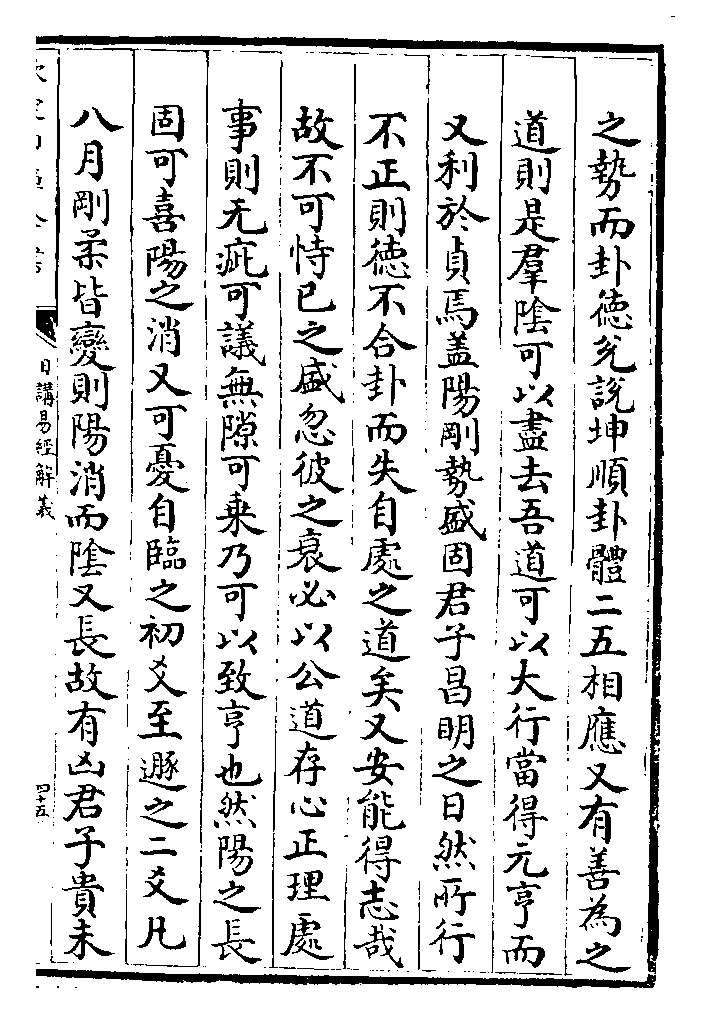 之勢而卦德兊說坤順卦體二五相應又有善為之
道則是羣隂可以盡去吾道可以大行當得元亨而
又利於貞焉盖陽剛勢盛固君子昌明之日然所行
不正則德不合卦而失自處之道矣又安能得志哉
故不可恃已之盛忽彼之衰必以公道存心正理處
事則无疵可議無隙可乗乃可以致亨也然陽之長
固可喜陽之消又可憂自臨之初爻至遯之二爻凡
八月剛柔皆變則陽消而隂又長故有凶君子貴未
日講易經解義
四十五